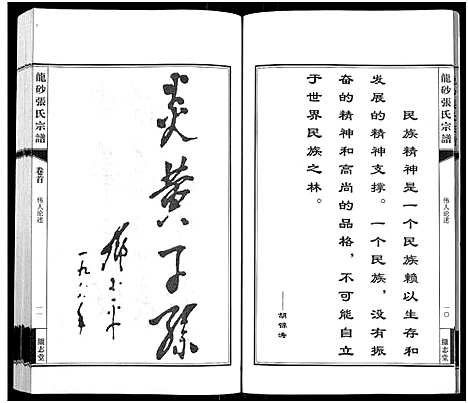 民族精神是一个民族赖以生存和
发展的精神支撑。一个民族，没有振
奋的精神和高尚的品格，不可能自立
于世界民族之林。
——胡锦涛
龍砂張氏宗譜
伟人论述
一〇
顯志堂
炎黄子孫
鄧小平
一九八八年
龍砂張氏宗譜
卷首
伟人论述
一一
顯志堂